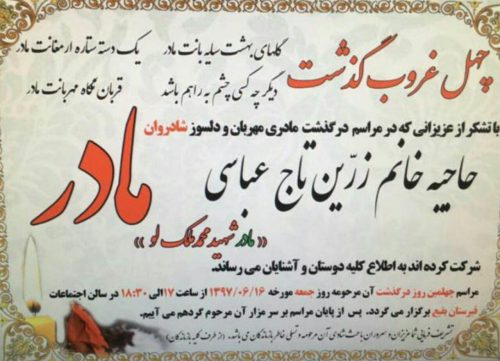 چهل غروب گذشت
گلهای بهشت سایه بانت مادر
یک دسته ستاره ارمغانت مادر
دیگر چه کسی چشم به راهم باشد
قربان نگاه مهربانت مادر
با تشکر از عزیزانی که در مراسم درگذشت مادری مهربان و دلسوز شادروان
حاجیه خانم زرّین تاج عباسی
مادر
«مادر شهید محمد ملک لو»
شرکت کرده اند به اطلاع کلیه دوستان و آشنایان می رساند.
مراسم چهلمین روز درگذشت آن مرحومه روز جمعه مورخه ۱۳۹۷/۰۶/۱۶ از ساعت ۱۷ الی ۱۸:۳۰ در سالن اجتماعات
قبرستان بقیع برگزار می گردد. پس از پایان مراسم بر سر مزار آن مرحوم گردهم می آییم.
تشریف فرمایی شما عزیزان و سروران باعث شادی آن مرحومه و تسلی خاطر بازماندگان می باشد. (از طرف کلیه بازماندگان)